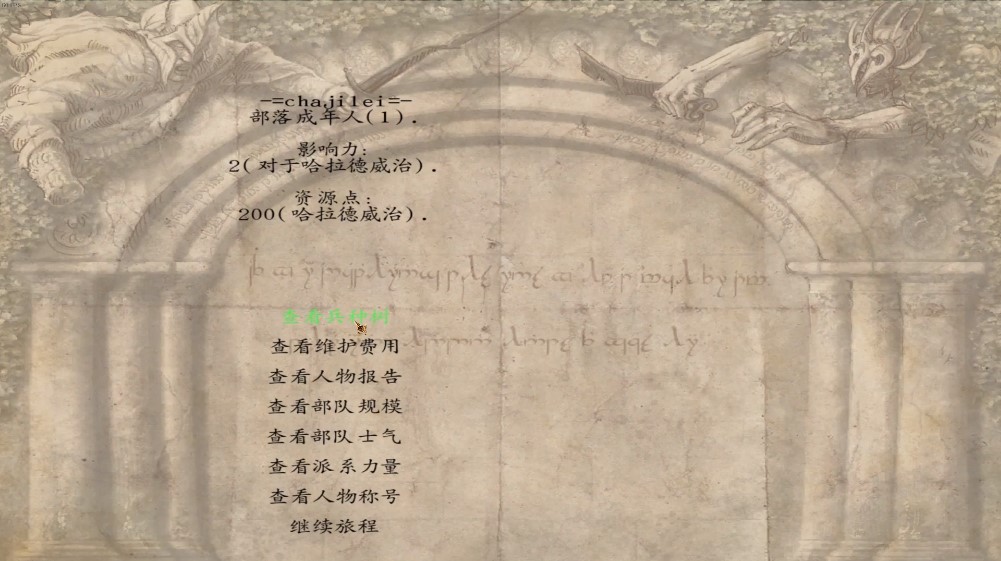 -=chajilei=-
部落成年人(1).
影响力:
2(对于哈拉德威治).
资源点:
200(哈拉德威治).
查看兵种树
查看维护费用
查看人物报告
查看部队规模
查看部队士气
查看派系力量
查看人物称号
继续旅程